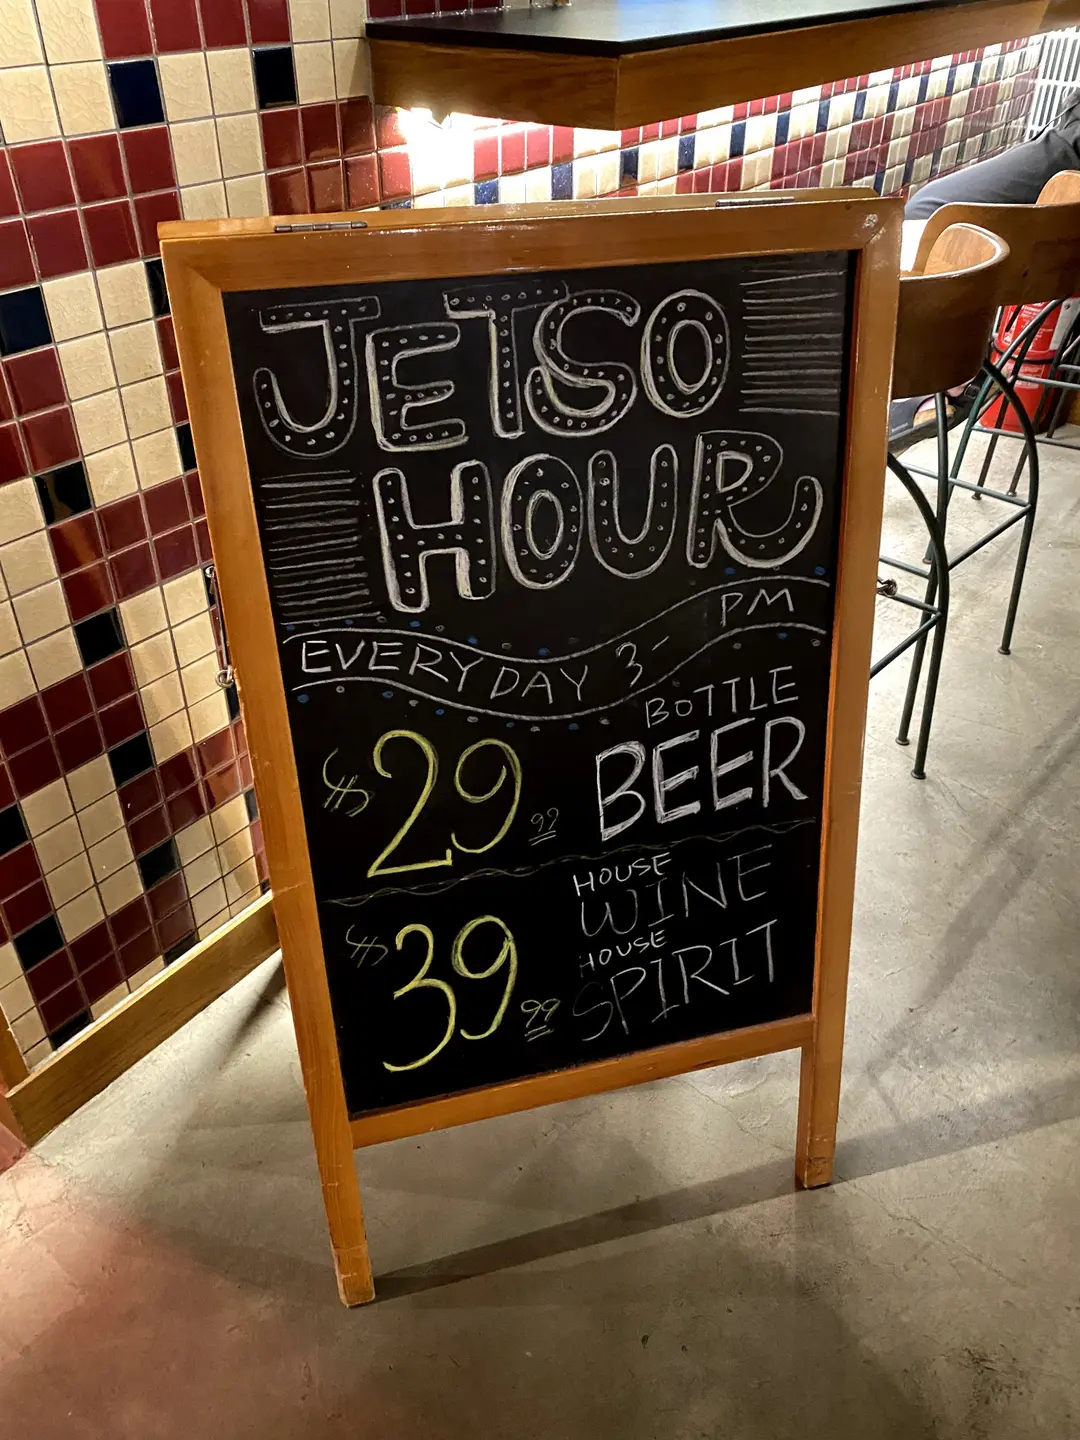 JETSO
HOUR
EVERYDAY 3- PM
$29.99 BOTTLE
BEER
$39.99 HOUSE
WINE
HOUSE
SPIRIT